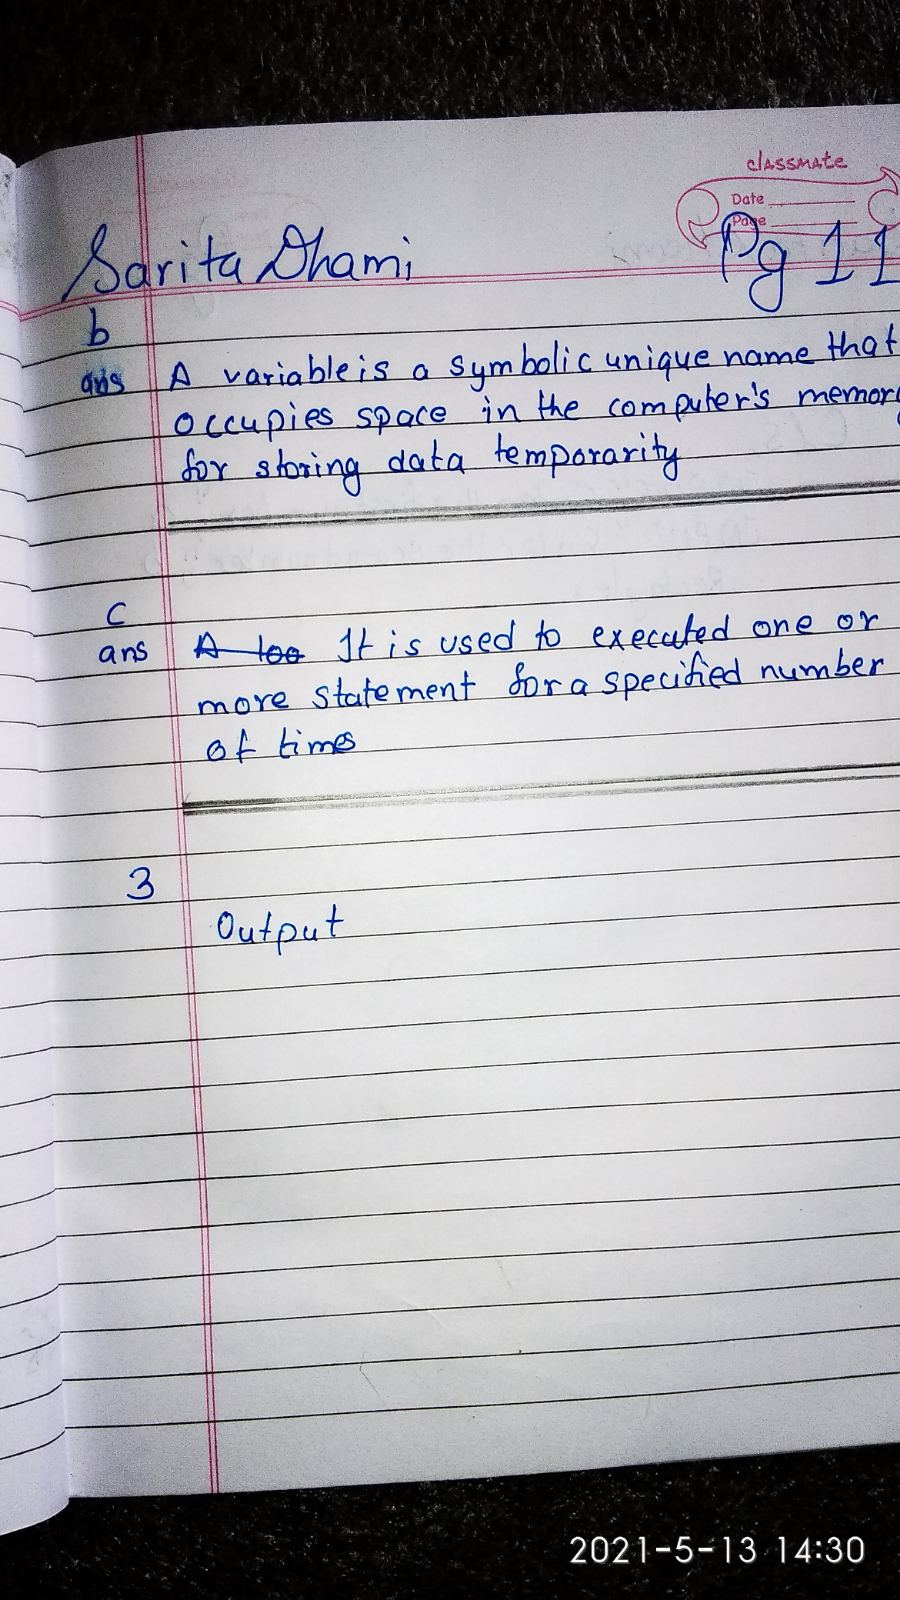 classmate
Date
Page
Sarita Dhami
Pg 11
b
ans A variable is a symbolic unique name that
occupies space in the computer's memory
for storing data temporarity
c
ans A loo It is used to executed one or
more statement for a specified number
of times
3
Output
2021-5-13 14:30